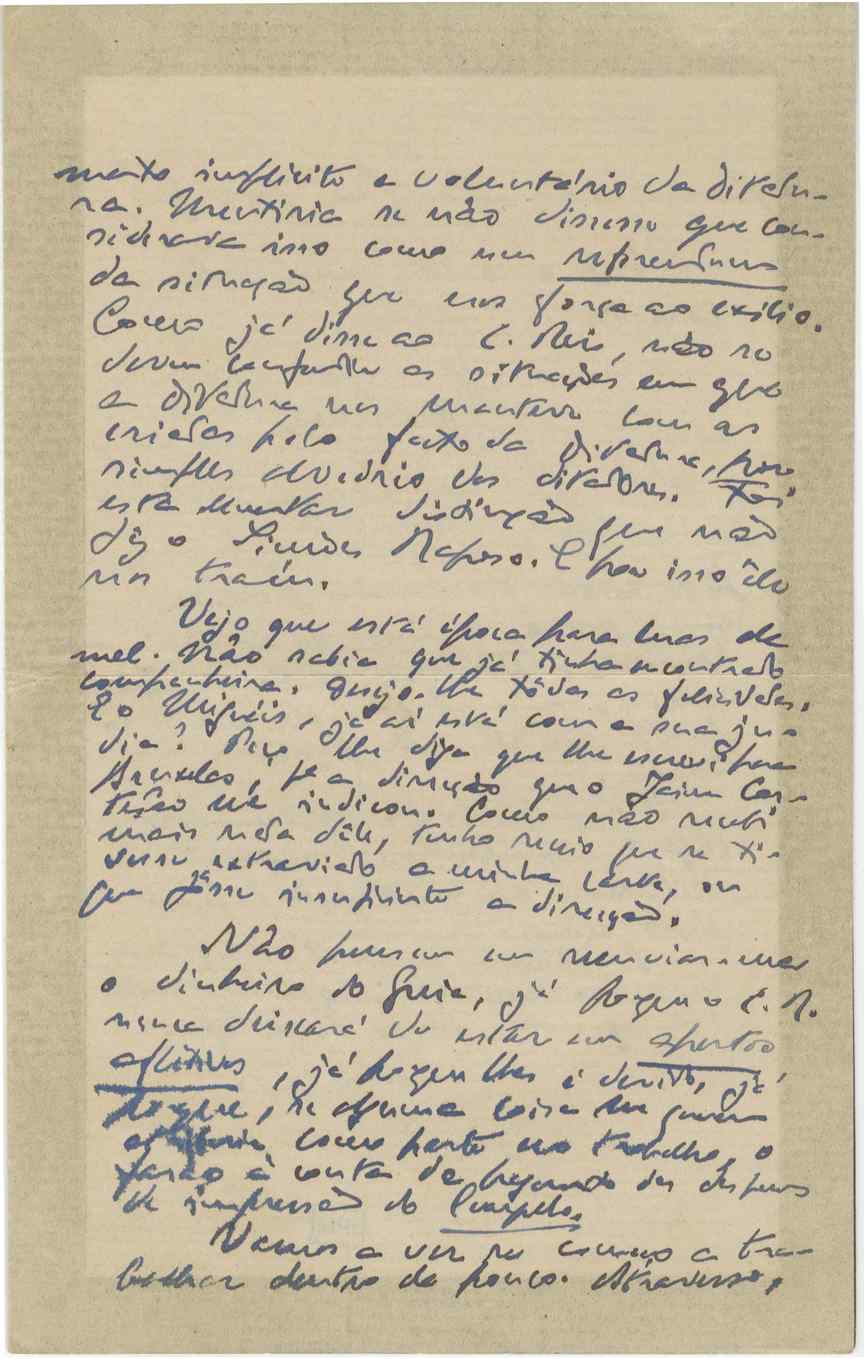 mento implícito e voluntário da ditadu-
ra. Mentiria se não dissesse que con-
siderava isso como um referendum
da situação que nos força ao exílio.
Como já disse ao C. Reis, não se
devem confundir as situações em que
a ditadura nos manteve com as
criadas pelo facto da ditadura, por
simples alvedrio dos ditadores. Foi
esta elementar distinção que não
o Simões Raposo. E por isso êle
nos traíu.
Vejo que está época para luas de
mel. Não sabia que já tinha encontrado
companheira. Desejo-lhe tôdas as felicidades.
E o Miguéis, já aí está com a sua ju-
dia? Peço lhe diga que lhe escrevi para
Bruxelas, p.ª a direcção que o Jaime Cor-
tesão me indicou. Como não recebi
mais nada dêle, tenho receio que se ti-
vesse extraviado a minha carta, ou
que fôsse insuficiente a direcção.
Não pensem em reenviar-me
o dinheiro do Guia, já porque o C. R.
nunca deixará de estar em apertos
aflitivos, já porque lhes é devido, já
porque, se alguma coisa me
como parte no trabalho, o
à conta de pagamento das despesas
de impressão do
Vamos a ver se começo a tra-
balhar dentro de pouco. Atravesso,